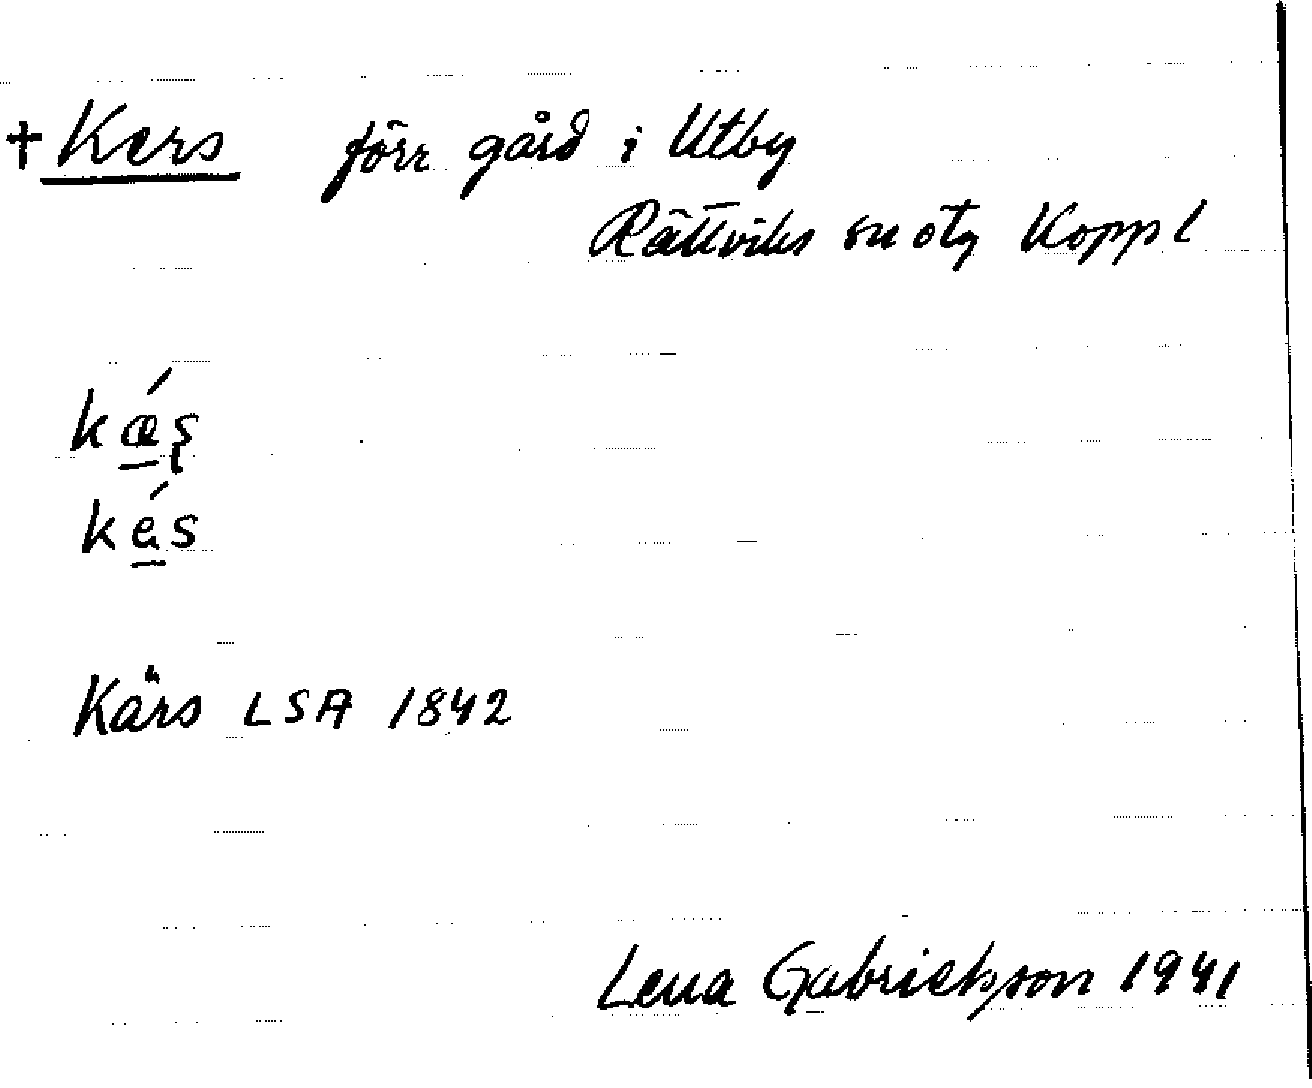 + Kers förr gård i Utby
Rättviks sn o tg Koppl
kǽș
kés
Kärs LSA 1842
Lena Gabrielsson 1941